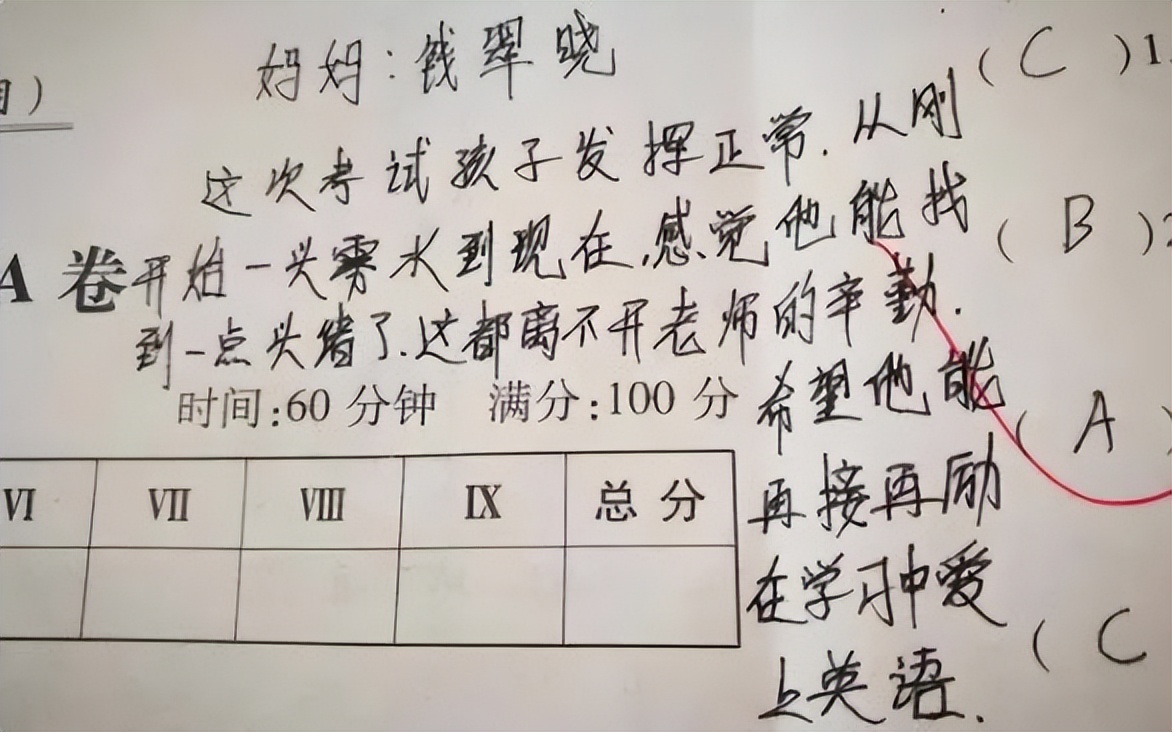 妈妈:钱翠晓
这次考试孩子发挥正常.从刚
A 卷
开始一头雾水到现在,感觉他能找
到一点头绪了.这都离不开老师的辛勤.
时间:60 分钟 满分:100 分
希望他能
再接再励
在学习中爱
上英语.
VI VII VIII IX 总分
( C )1.
( B )
( A )
( C